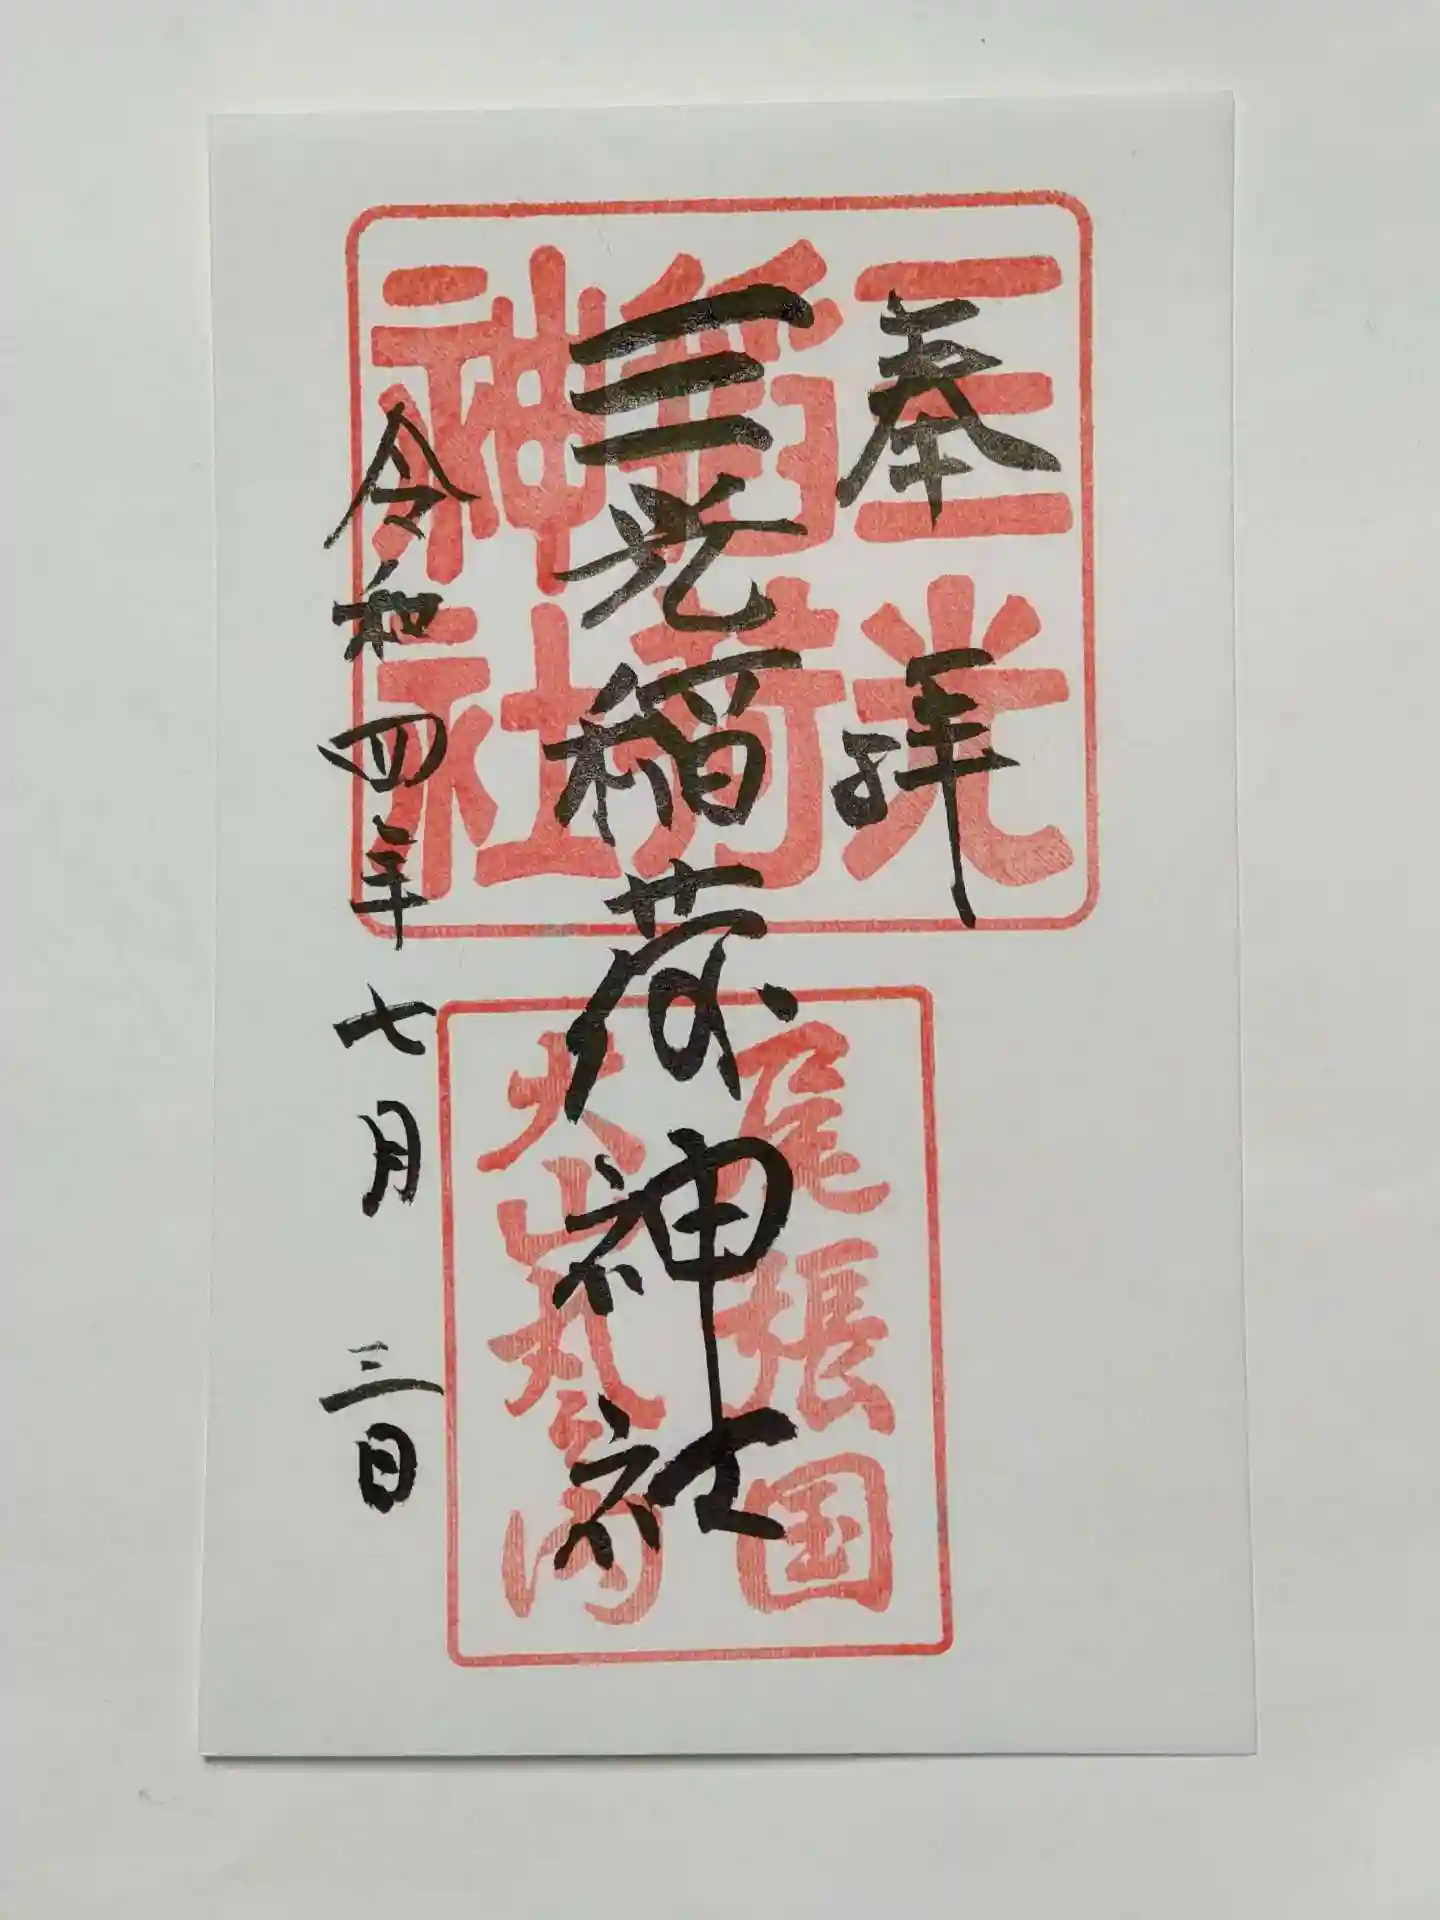 奉拝
三光稲荷神社
令和四年七月三日
三光
稲荷
神社
尾張国
犬山丸の内